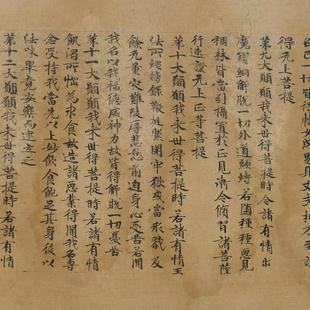 得无上菩提
第九大願願我來世得菩提時令諸有情出
魔羂網解脫一切外道纏縛若墮種種惡見
稠林皆當引攝置於正見漸令修習諸菩薩
行速證无上正等菩提
第十大願願我來世得菩提時若諸有情王
法所鞭撻繫閉牢獄或當形戮及
餘无量灾難陵辱悲愁煎逼身心受苦若聞
我名以我福德威神力故皆得解脫一切憂苦
第十一大願願我來世得菩提時若諸有情
飢渴所惱為求食故造諸惡業得聞我名專
念受持我當先以上妙飲食飽足其身後以
法味畢竟安樂而建立之
第十二大願願我來世得菩提時若諸有情